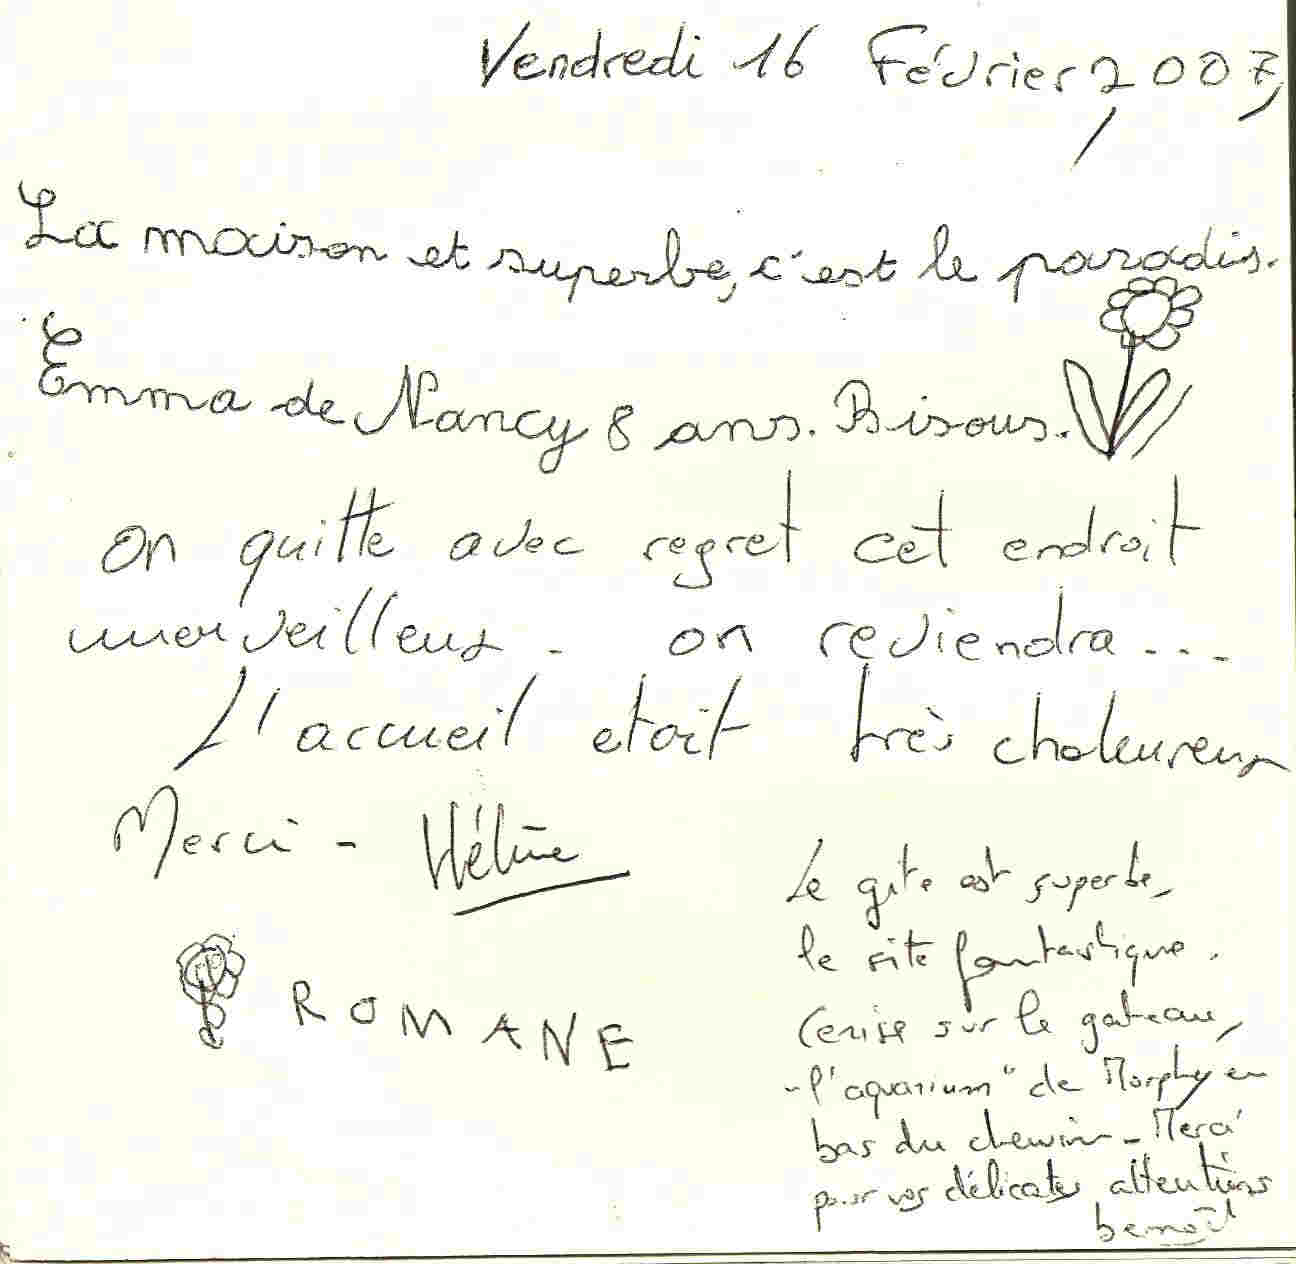 Vendredi 16 Février 2007,
La maison et superbe, c'est le paradis.
Emma de Nancy 8 ans. Bisous.
on quitte avec regret cet endroit
merveilleux - on reviendra...
L'accueil etait très chaleureux
Merci - Hélène
ROMANE
Le gite est superbe,
le site fantastique.
Cerise sur le gateau,
"l'aquarium" de Morphy en
bas du chemin - Merci
pour vos délicates attentions
benoît